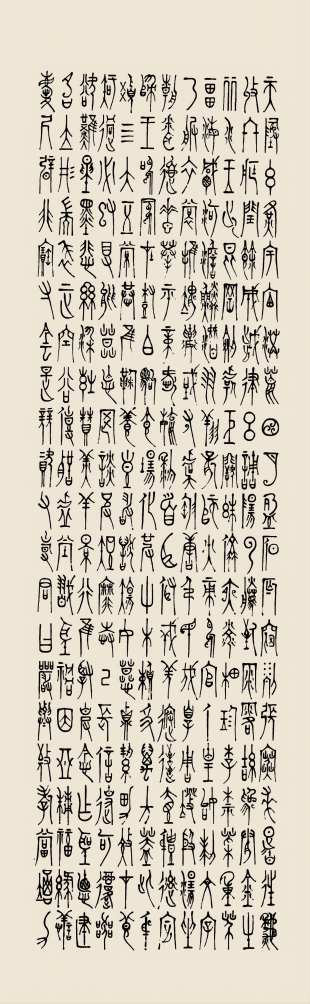 天地玄黃宇宙洪荒日月盈昃辰宿列張寒來暑往秋
收冬藏閏餘成歲律呂調陽雲騰致雨露結為霜金生
麗水玉出崑岡劍號巨闕珠稱夜光果珍李柰菜重芥
薑海鹹河淡鱗潛羽翔龍師火帝鳥官人皇始制文字
乃服衣裳推位讓國有虞陶唐弔民伐罪周發殷湯坐
朝問道垂拱平章愛育黎首臣伏戎羌遐邇壹體率賓
歸王鳴鳳在樹白駒食場化被草木賴及萬方蓋此身
髮四大五常恭惟鞠養豈敢毀傷女慕貞絜男效才良
知過必改得能莫忘罔談彼短靡恃己長信使可覆器
欲難量墨悲絲染詩讚羔羊景行維賢克念作聖德建
名立形端表正空谷傳聲虛堂習聽禍因惡積福緣善
慶尺璧非寶寸陰是競資父事君曰嚴與敬孝當竭力